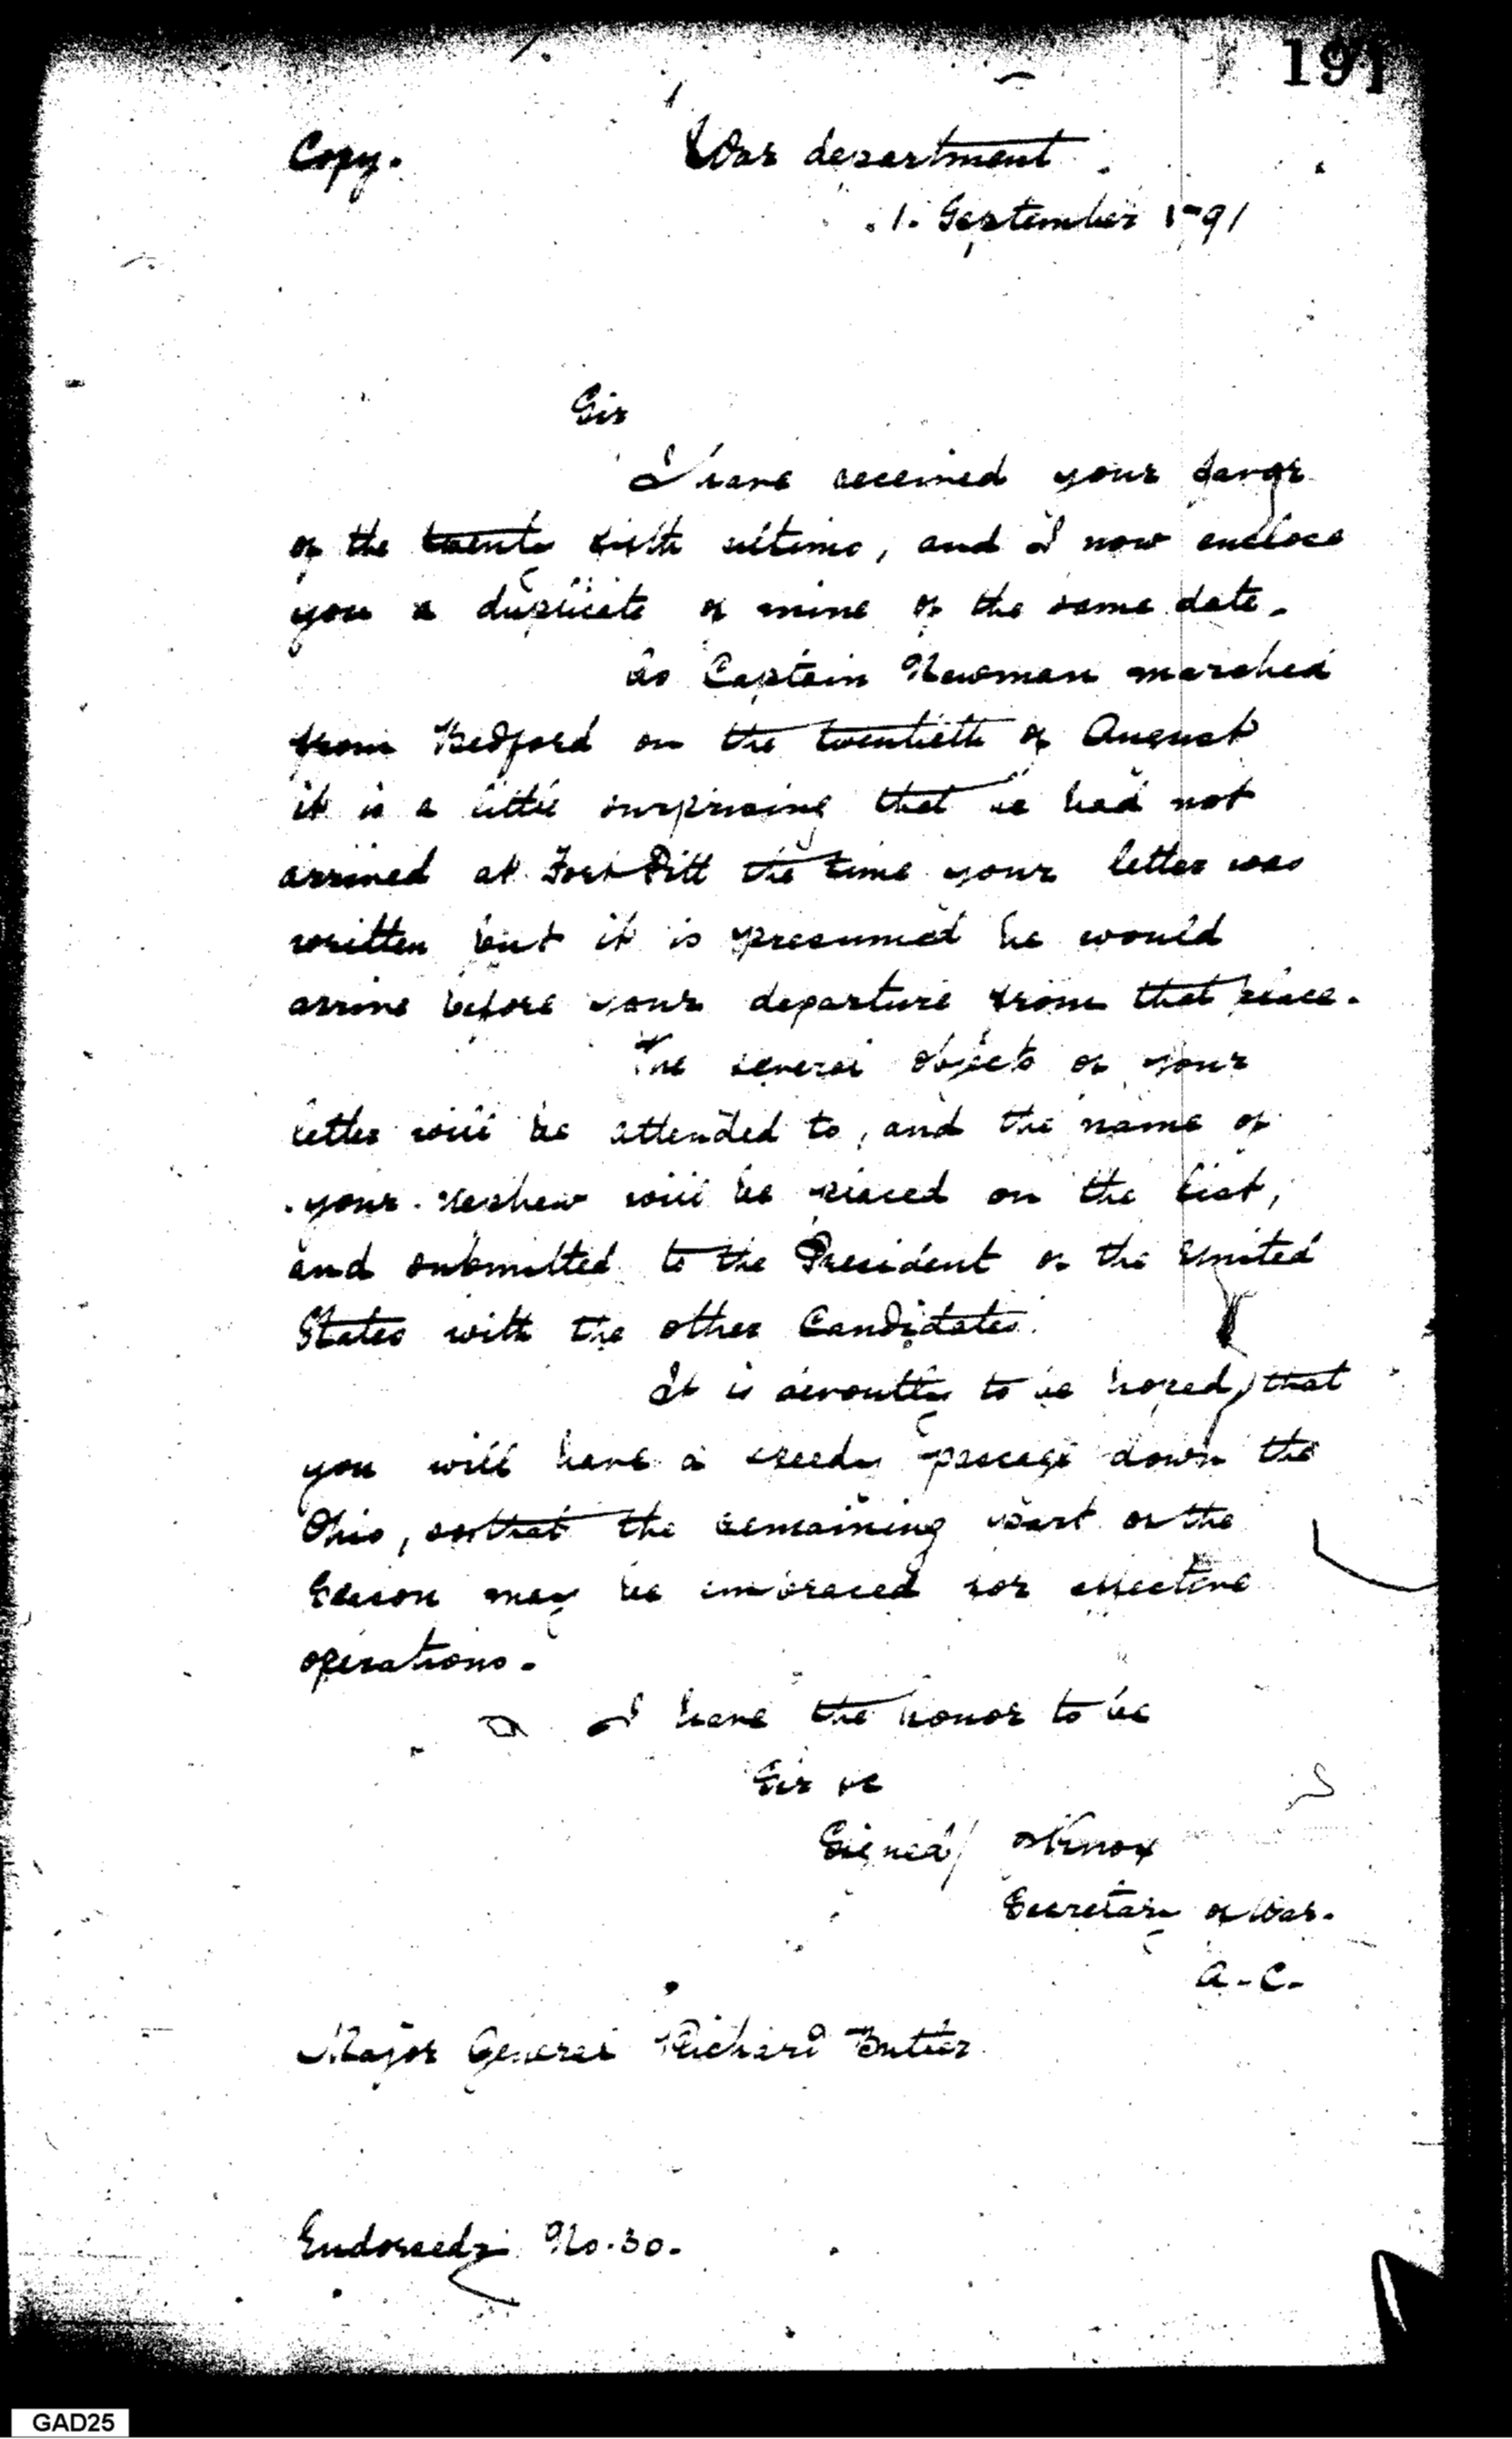 191
Copy. War department
1. September 1791
Sir
I have received your favor
of the twenty sixth ultimo, and I now enclose
you a duplicate of mine of the same date.
As Captain Newman marched
from Bedford on the twentieth of August
it is a little surprising that he had not
arrived at Fort Pitt the time your letter was
written but it is presumed he would
arrive before your departure from that place.
The several objects of your
letter will be attended to, and the name of
your Nephew will be placed on the list,
and submitted to the President of the United
States with the other Candidates.
It is devoutly to be hoped, that
you will have a speedy passage down the
Ohio, so that the remaining part of the
Season may be embraced for effective
operations.
I have the honor to be
Sir &c
Signed/ HKnox
Secretary of War.
A.C.
Major General Richard Butler
Endorsed, No. 30.
GAD25